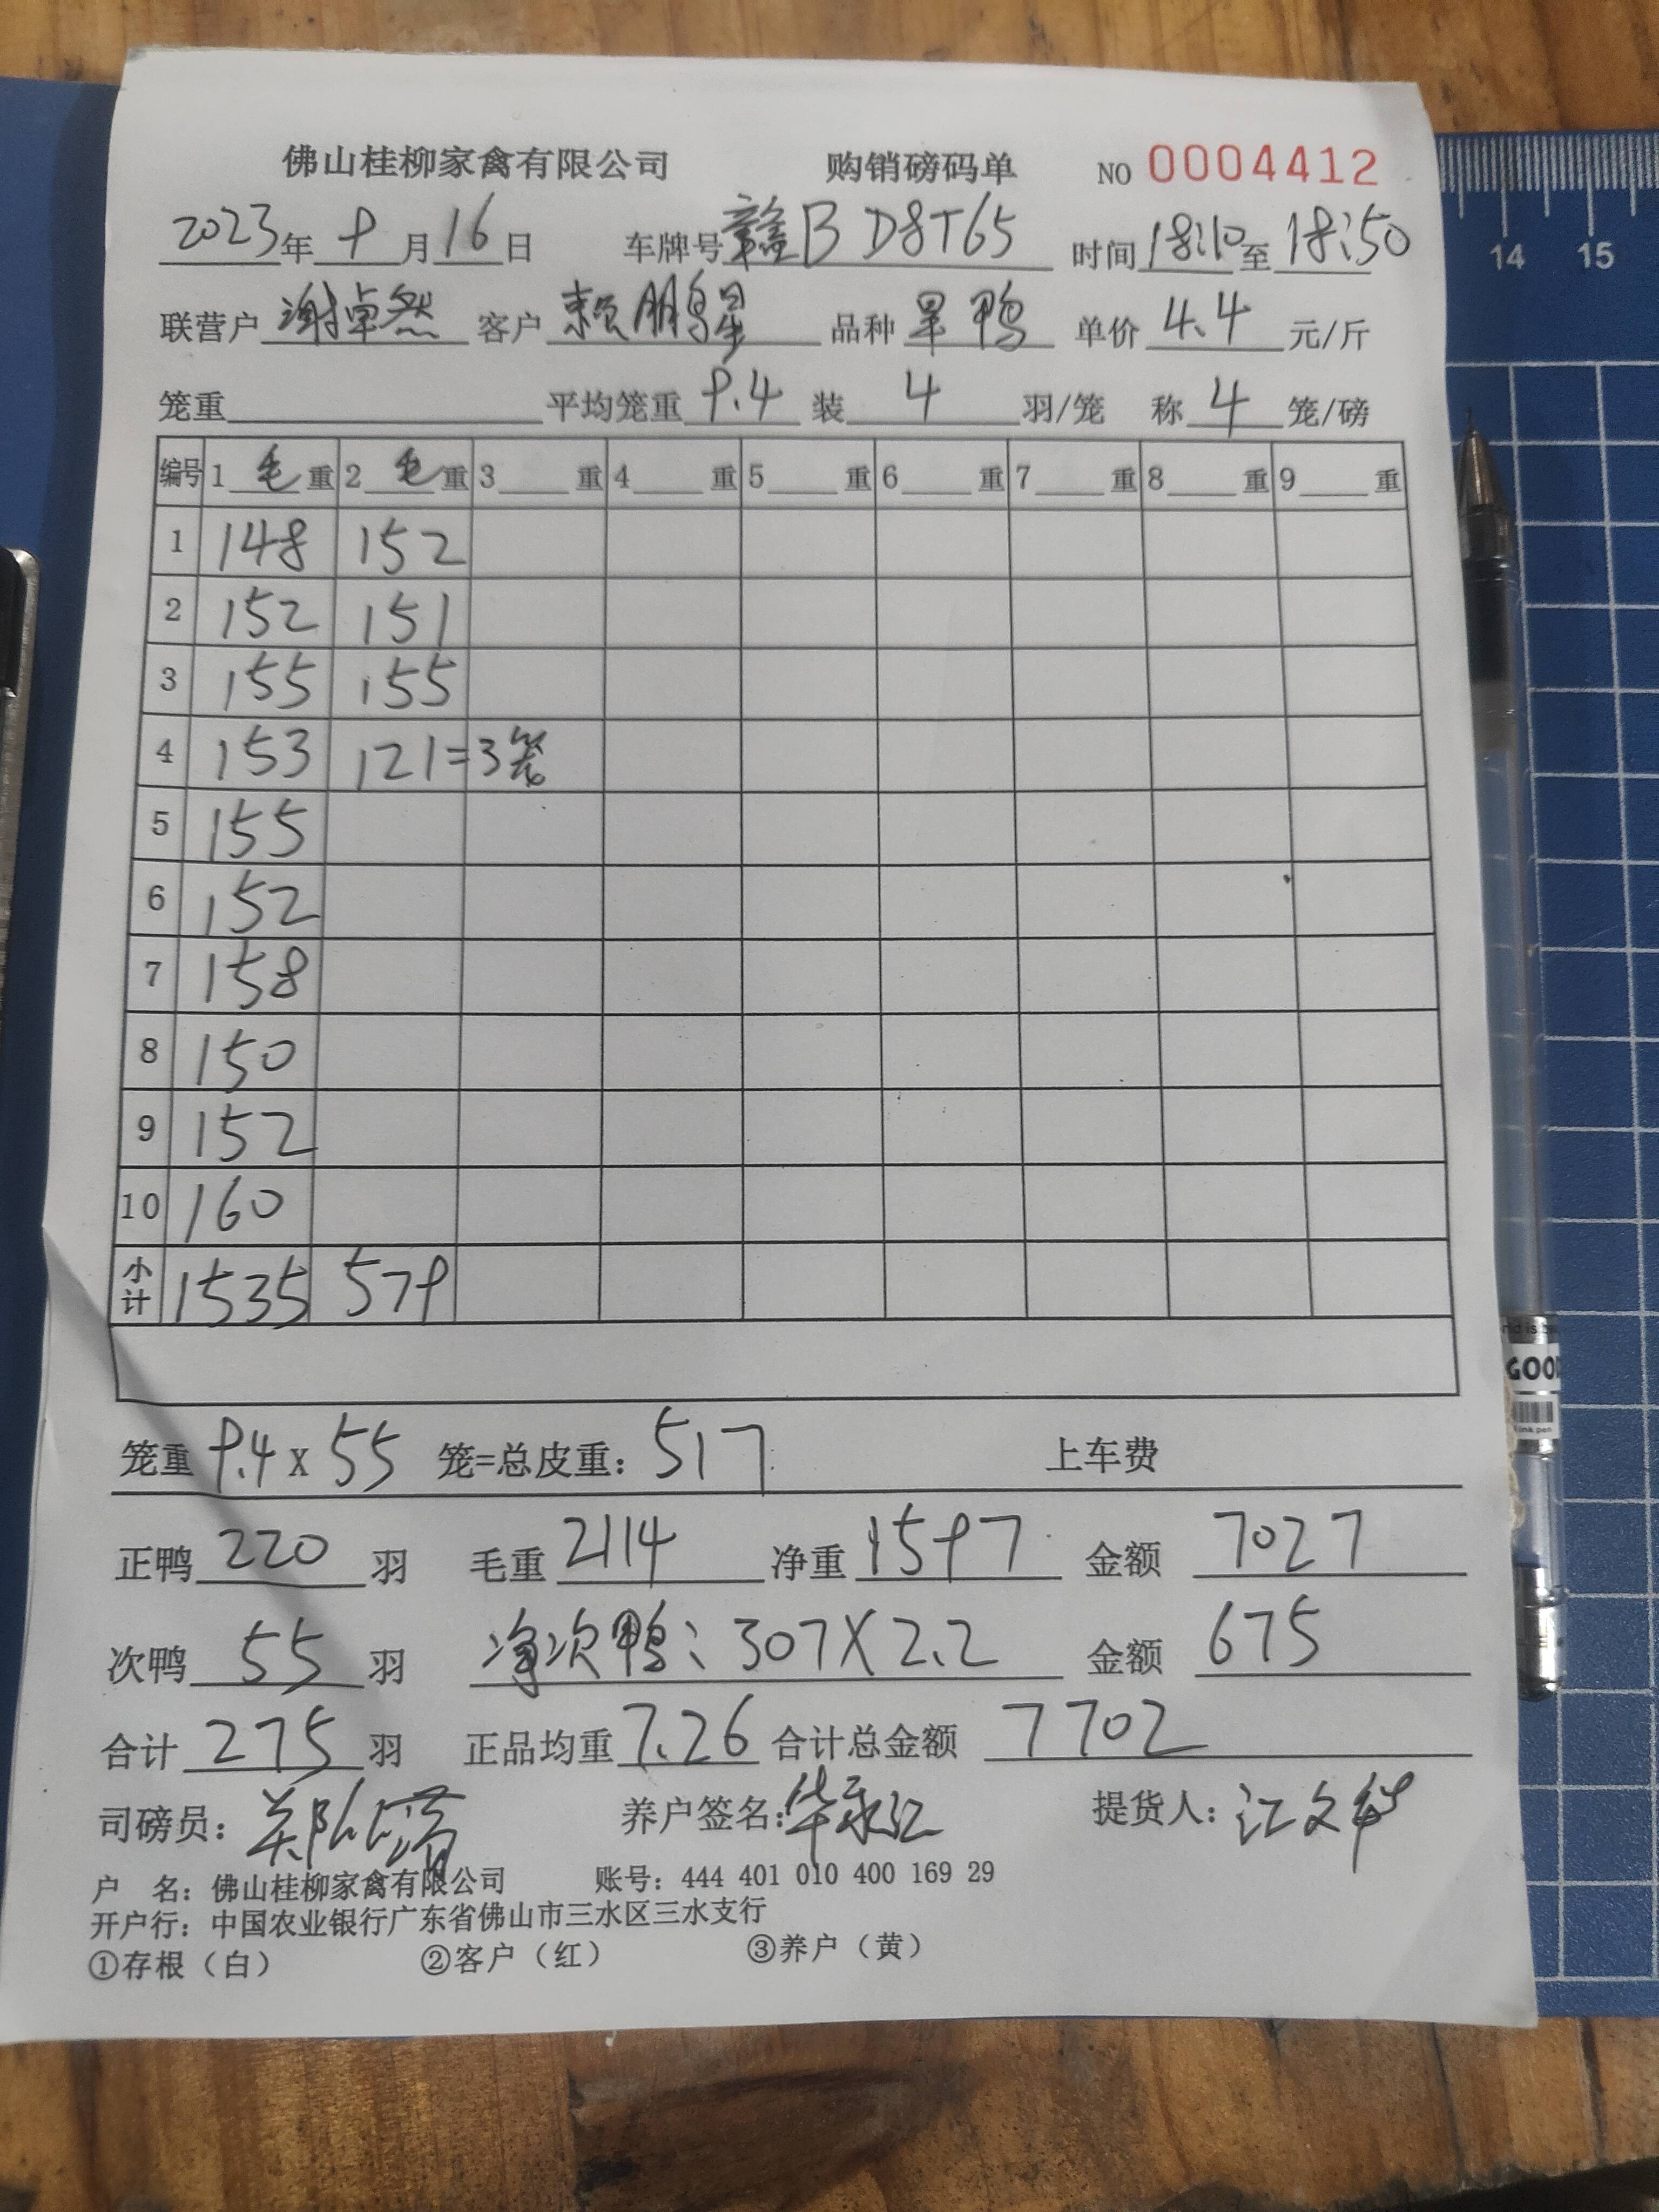 佛山桂柳家禽有限公司 购销磅码单 NO 0004412
2023年 9月16日 车牌号 赣B D8T65 时间 18:10 至 18:50
联营户 谢卓然 客户 赖鹏星 品种 旱鸭 单价 4.4 元/斤
笼重 平均笼重 9.4 装 4 羽/笼 称 4 笼/磅
编号 1 毛 重 2 毛 重 3 重 4 重 5 重 6 重 7 重 8 重 9 重
1 148 152
2 152 151
3 155 155
4 153 121=3笼
5 155
6 152
7 158
8 150
9 152
10 160
小计 1535 579
笼重 9.4 x 55 笼=总皮重: 517 上车费
正鸭 220 羽 毛重 2114 净重 1597 金额 7027
次鸭 55 羽 净次鸭: 307X2.2 金额 675
合计 275 羽 正品均重 7.26 合计总金额 7702
司磅员: 养户签名: 提货人:
户 名: 佛山桂柳家禽有限公司 账号: 444 401 010 400 169 29
开户行: 中国农业银行广东省佛山市三水区三水支行
①存根（白） ②客户（红） ③养户（黄）
14 15
GOOD
ink pen